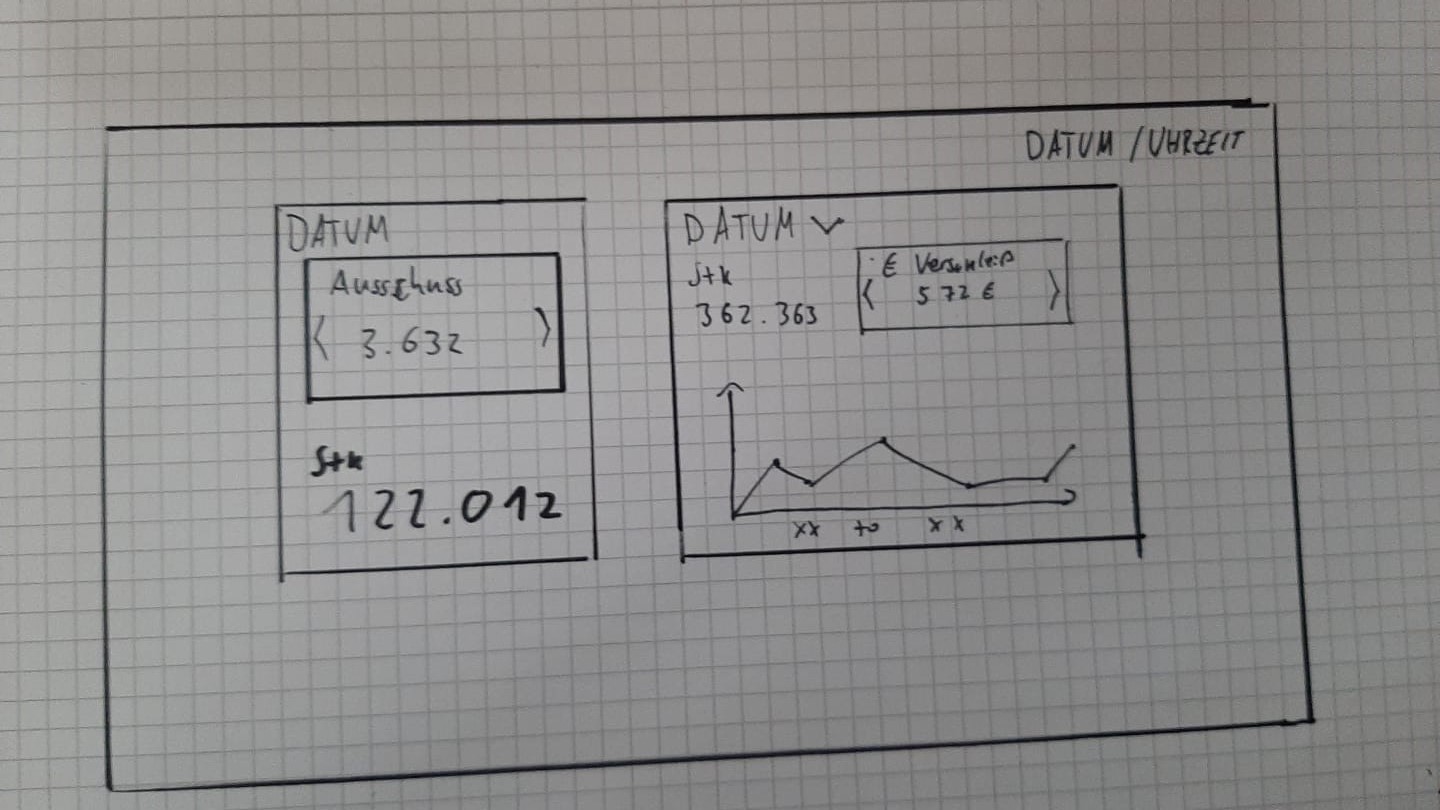 DATUM / UHRZEIT
DATUM
Ausschuss
< 3.632 >
Stk
122.012
DATUM ˅
Stk
362.363
€ Verschleiß
< 572 € >
xx to xx